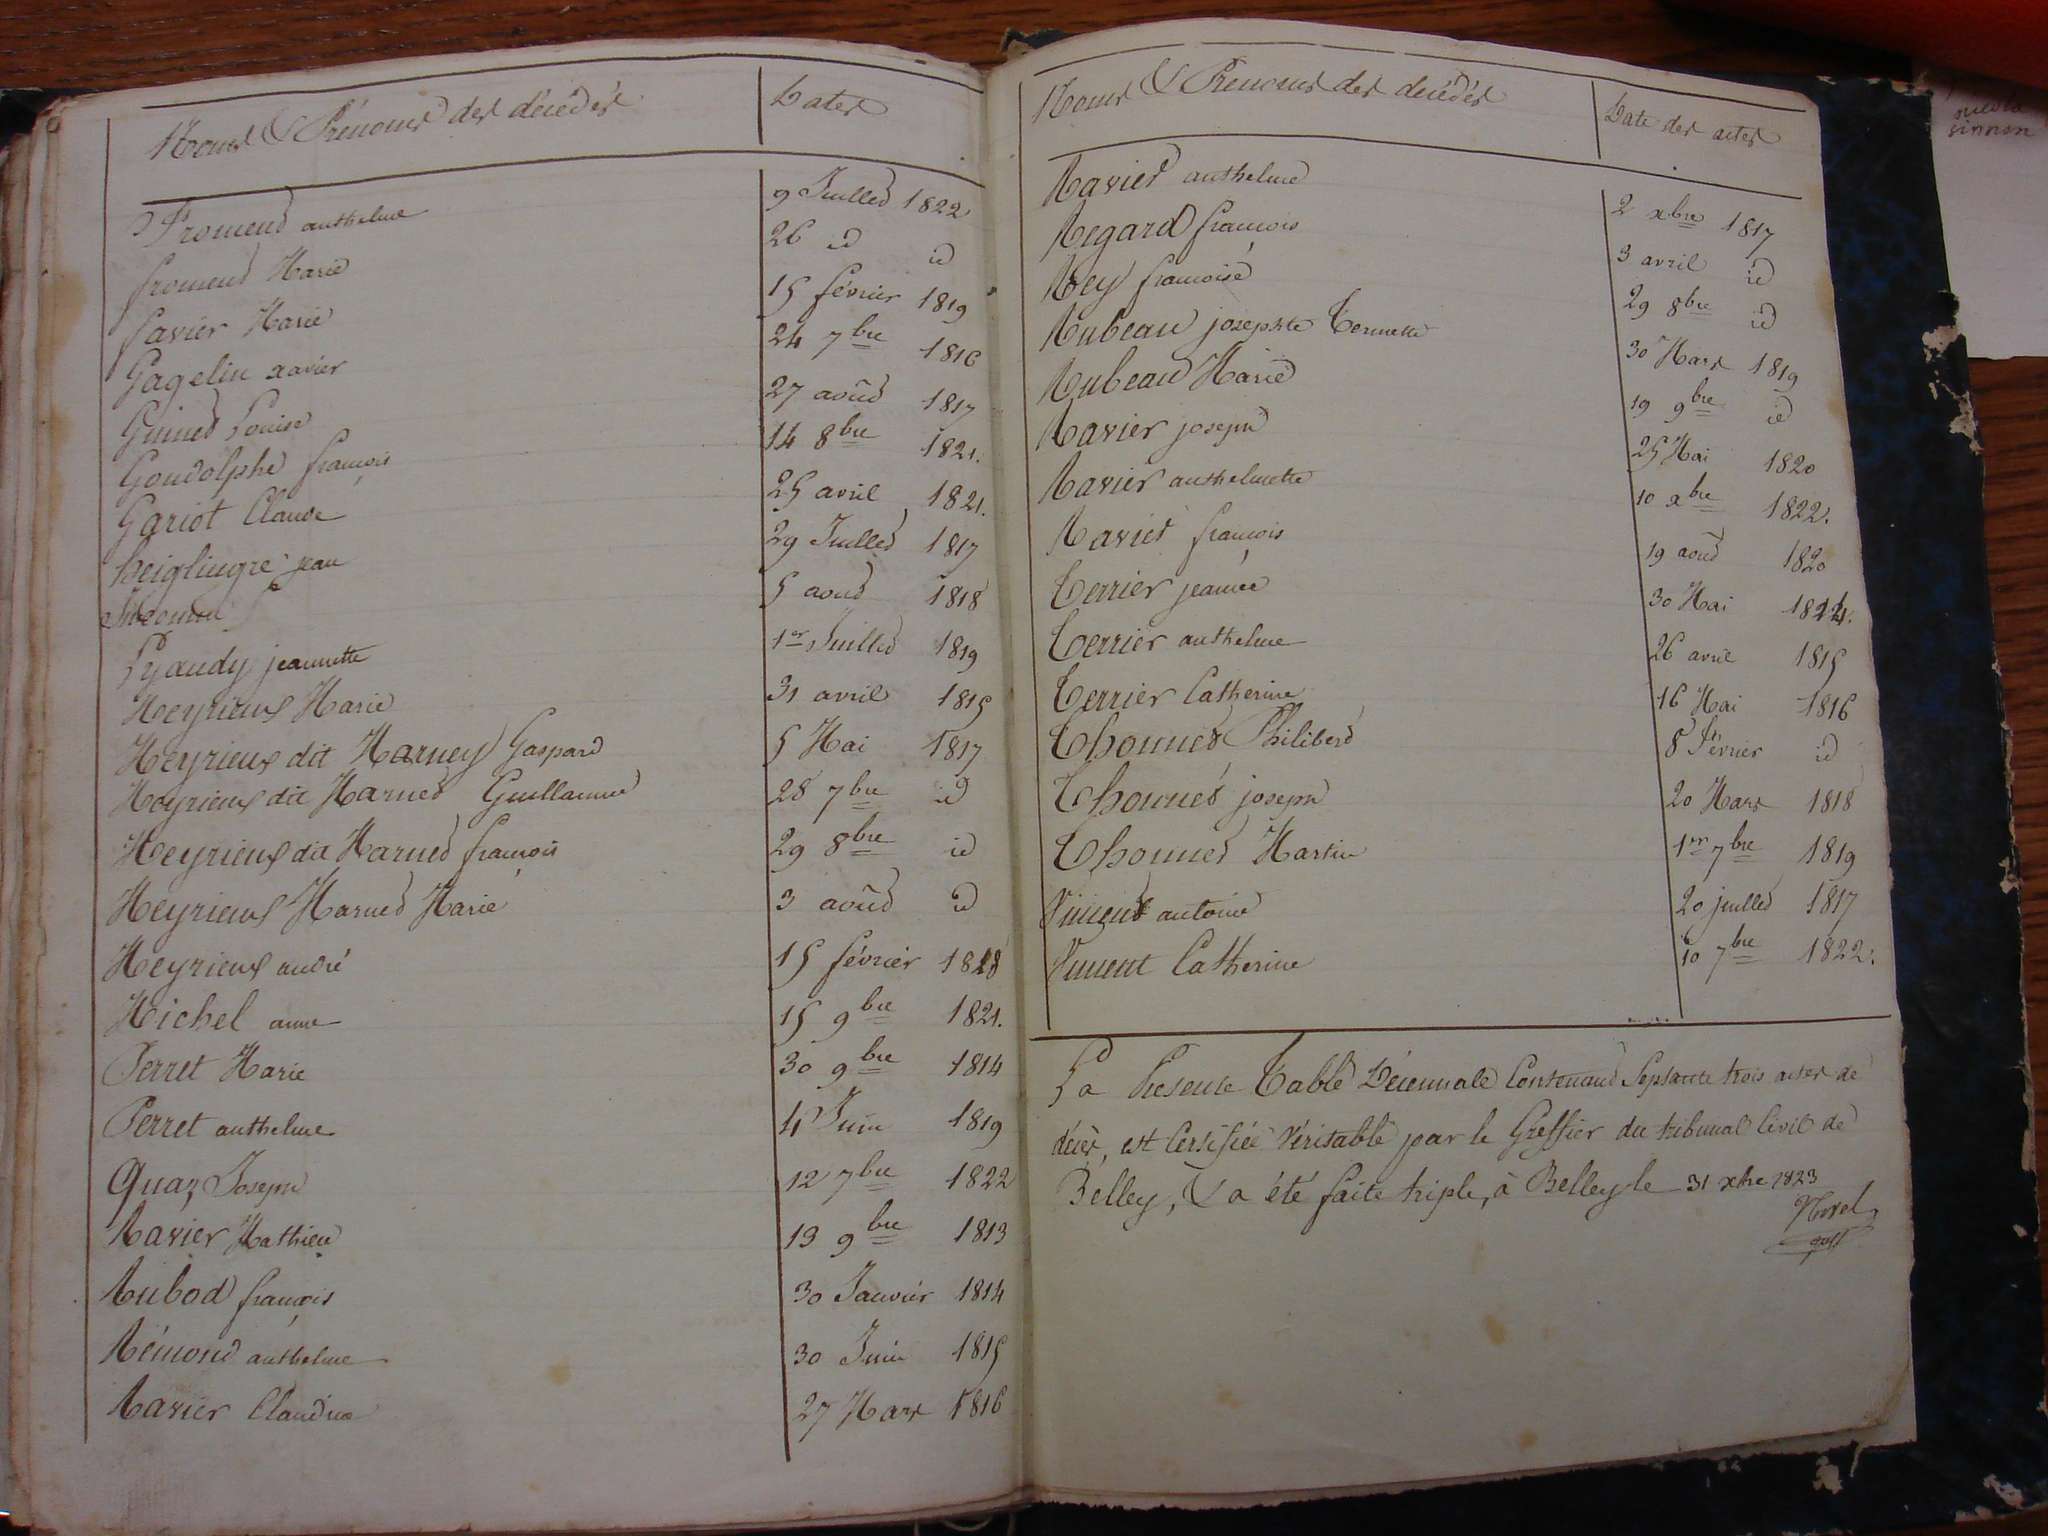 Noms & Prénoms des décédés Dates
Froment anthelme 9 Juillet 1822
froment Marie 26 id id
favier Marie 15 février 1819
Gagelin xavier 24 7bre 1816
Guinet Louise 27 août 1817
Goudolphe françois 14 8bre 1821.
Gariot Claude 25 avril 1821.
heiglingre jean 29 Juillet 1817
5 aout 1818
Lyaudy jeannette 1er Juillet 1819
Meyrieux Marie 31 avril 1815
Meyrieux dit Marney Gaspard 5 Mai 1817
Meyrieux dit Marnet Guillaume 28 7bre id
Meyrieux dit Marnet françois 29 8bre id
Meyrieux Marnet Marie 3 août id
Meyrieux andré 15 février 1818
Michel anne 15 9bre 1821.
Perret Marie 30 9bre 1814
Perret anthelme 4 Juin 1819
Quaz Joseph 12 7bre 1822
Ravier Mathieu 13 9bre 1813
Rubod françois 30 Janvier 1814
Rémond anthelme 30 Juin 1815
Ravier Claudine 27 Mars 1816
Noms & Prénoms des décédés Date des actes
Ravier anthelme 2 xbre 1817
Regard françois 3 avril id
Rey françoise 29 8bre id
Rubeau josephte Pernette 30 Mars 1819
Rubeau Marie 19 9bre id
Ravier joseph 25 Mai 1820
Ravier anthelmette 10 xbre 1822.
Ravier françois 19 août 1820
Terrier jeanne 30 Mai 1814.
Terrier anthelme 26 avril 1815
Terrier Catherine 16 Mai 1816
Thonnet Philibert 8 février id
Thonnet joseph 20 Mars 1818
Thonnet Martin 1er 7bre 1819
Vincent antoine 20 juillet 1817
Vincent Catherine 10 7bre 1822.
La Presente Table Décennale Contenant Septante trois actes de
décès, est Certifiée Véritable par le Greffier du tribunal Civil de
Belley, & a été faite triple, à Belley le 31 xbre 1823
greff